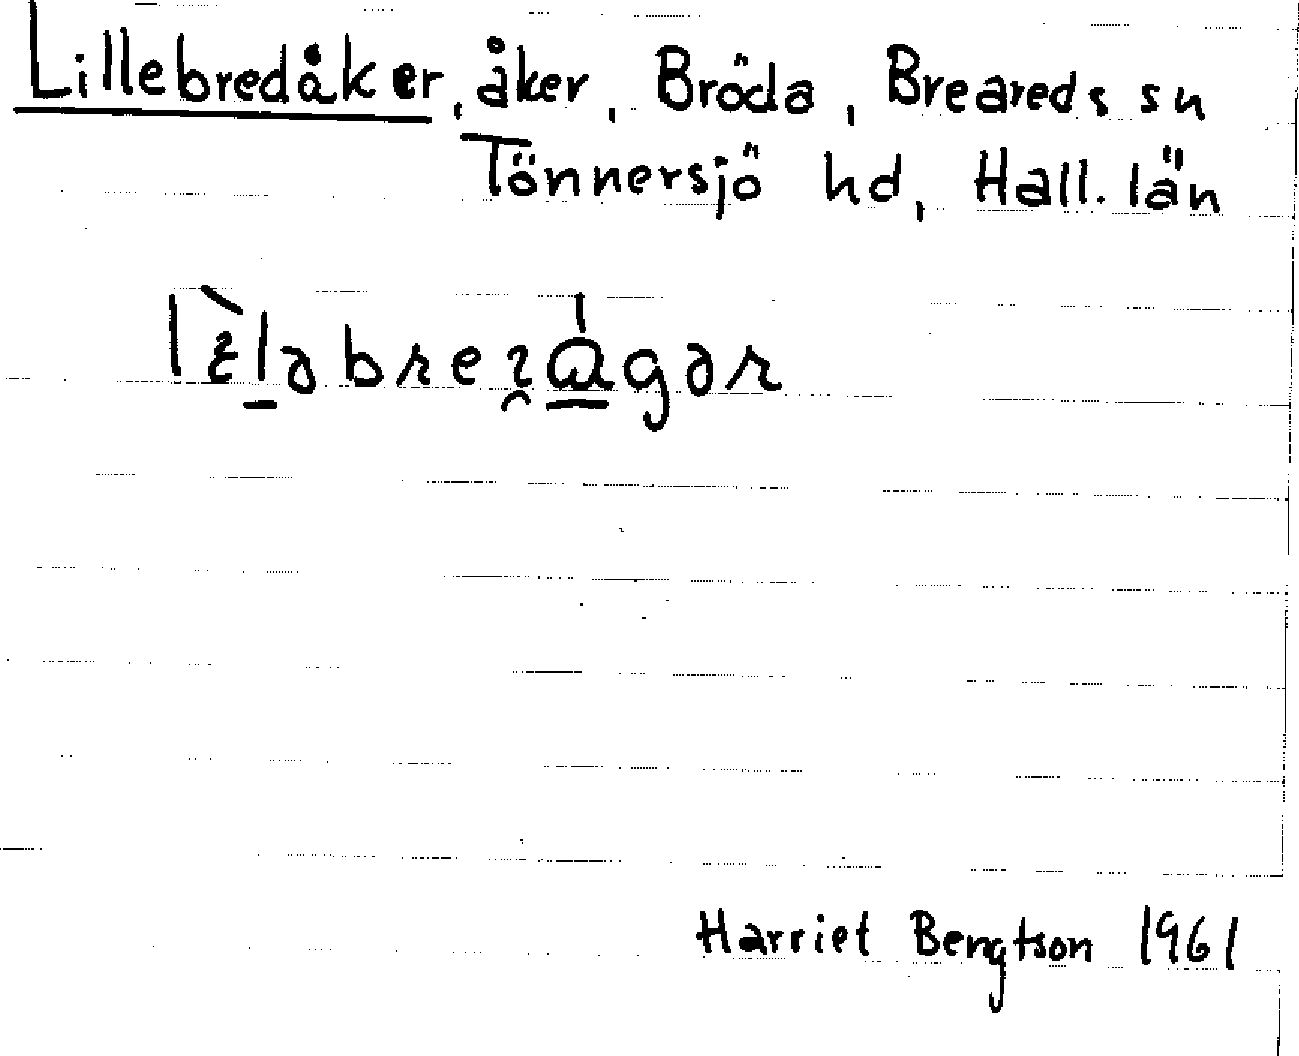 Lillebredåker, åker, Bröda, Breareds sn
Tönnersjö hd, Hall. län
Harriet Bengtson 1961